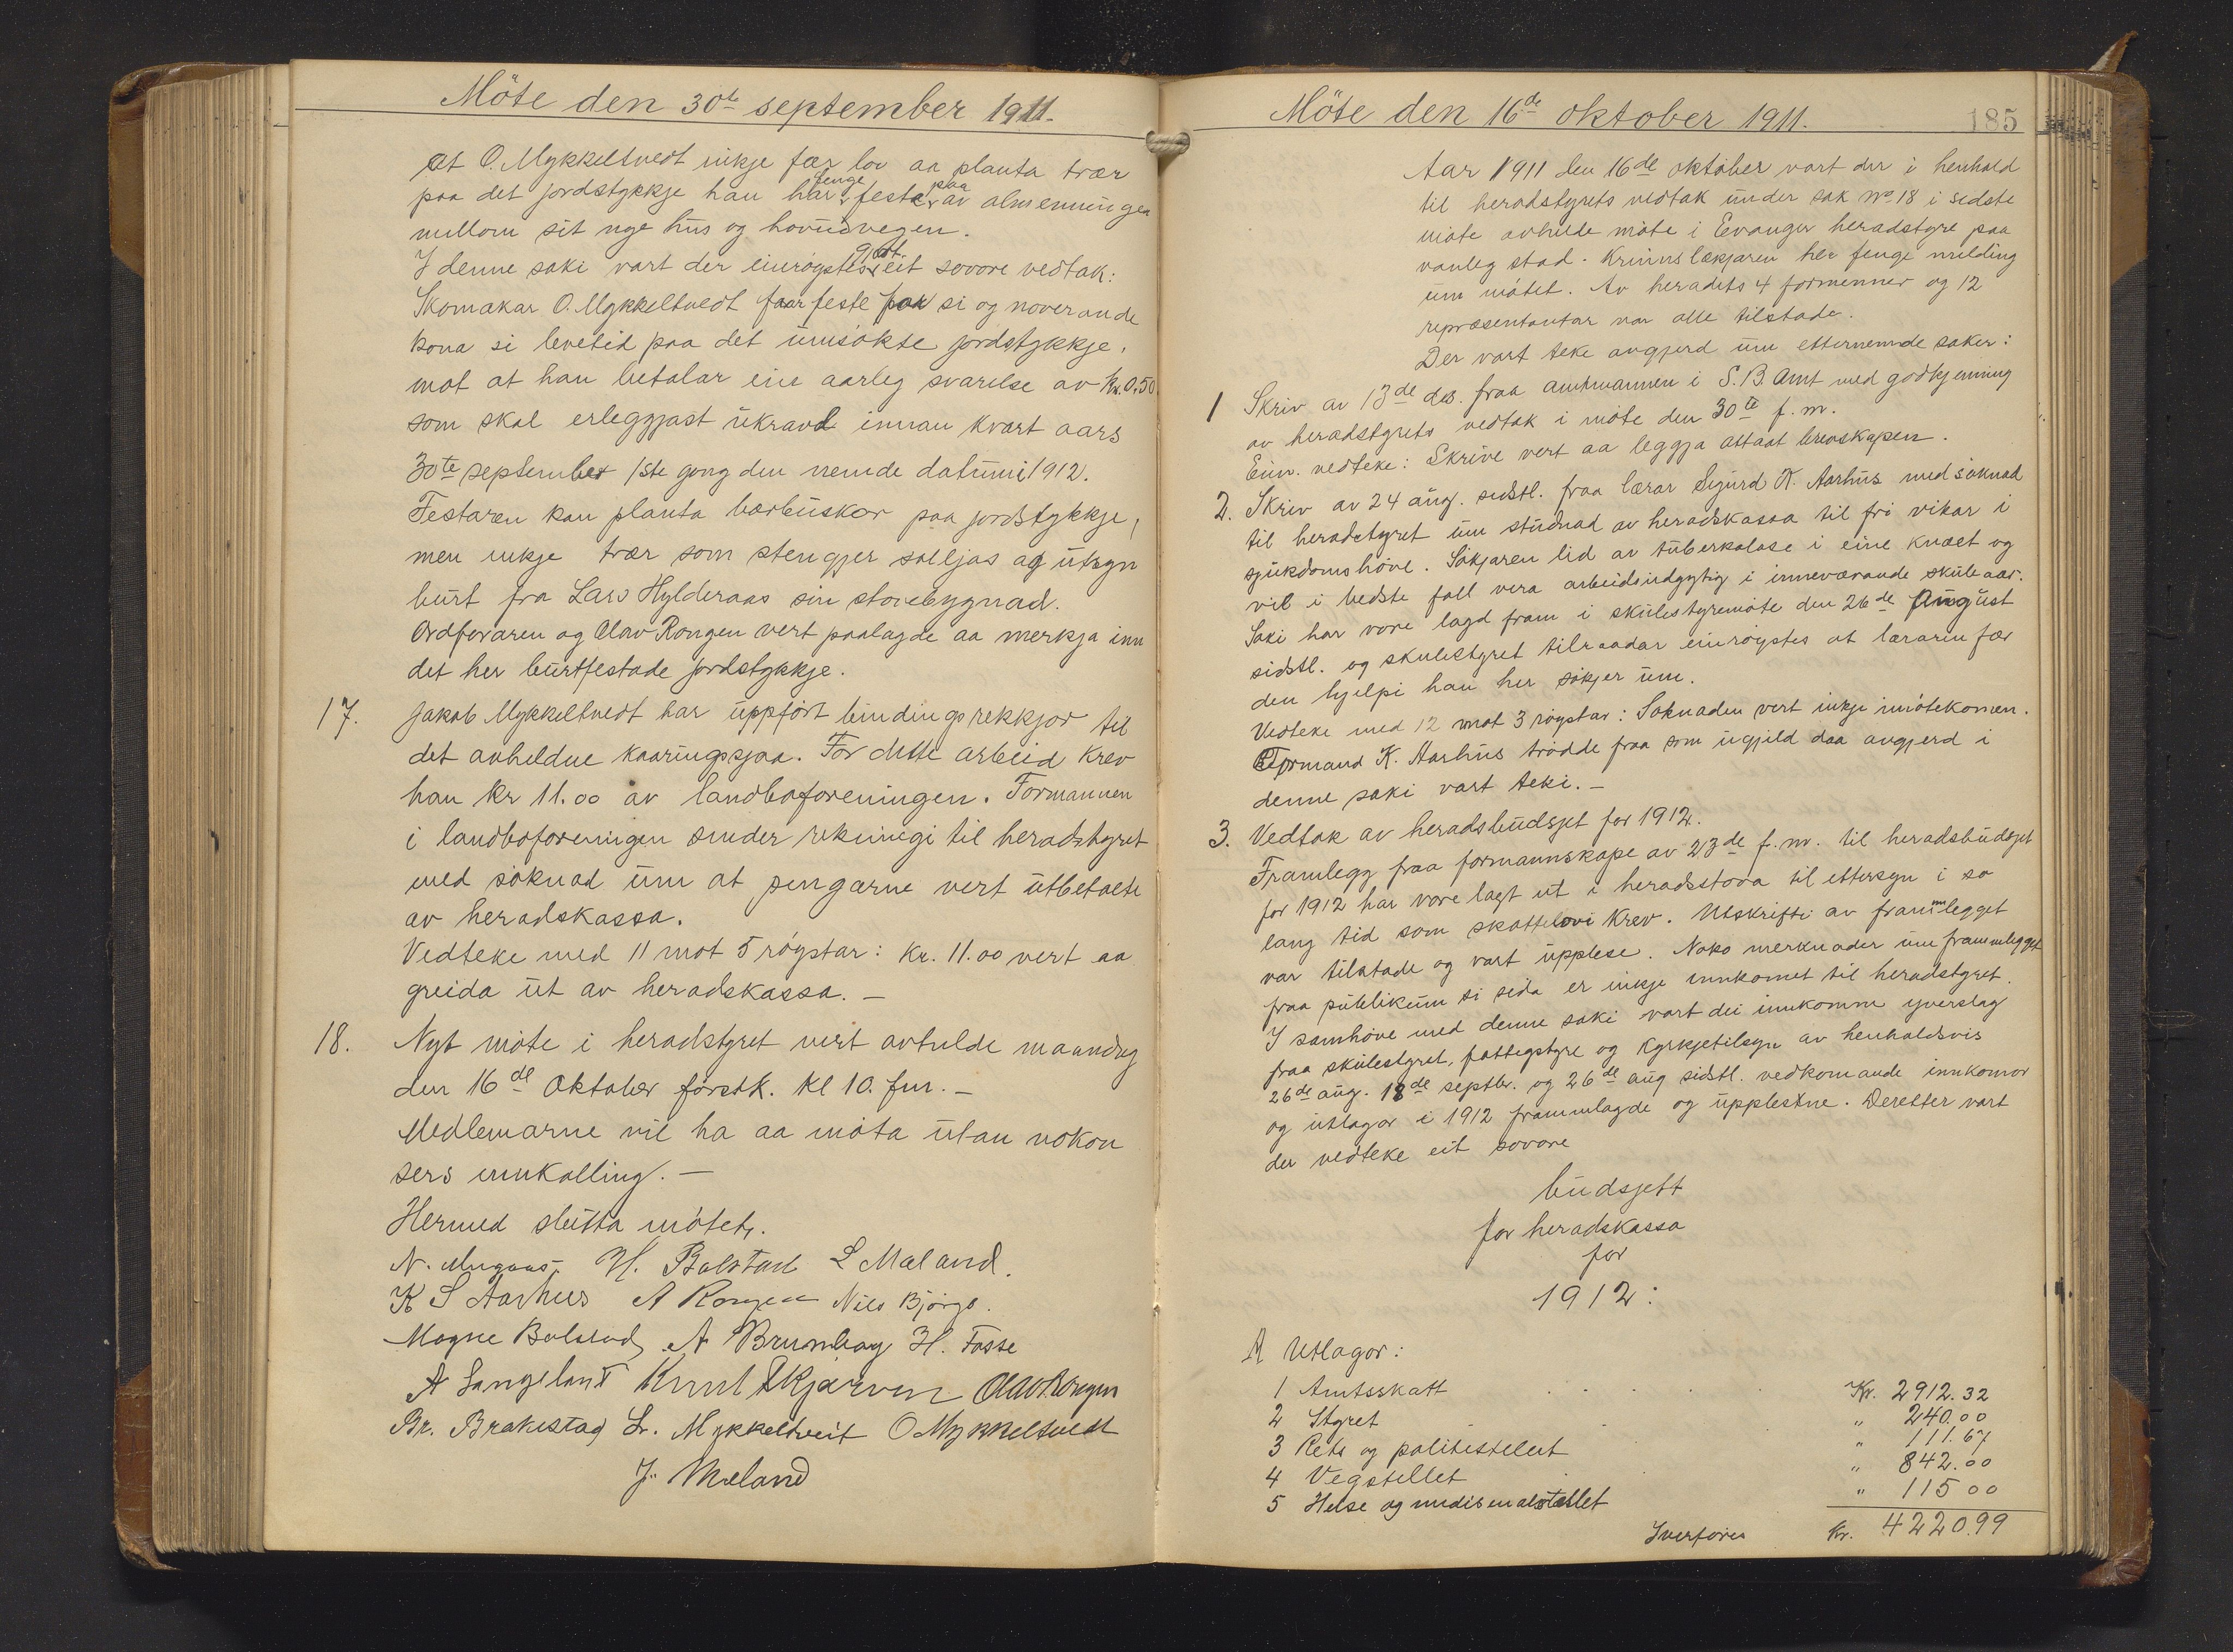 Möte den 30te september 1911.
at O. Mykkeltvedt inkje fær lov aa planta trær
paa det jordstykkje han har fenge feste paa av almenningen
millom sit nye hus og hovudvegen.
I denne saki vart der einrøystes gjort eit sovore vedtak:
Skomakar O. Mykkeltvedt faar feste for si og noverande
kona si levetid paa det umsøkte jordstykkje,
mot at han betalar ein aarleg svarelse av Kr. 0,50
som skal erleggjast ukravd innan kvart aars
30te september 1ste gong den nemde datum i 1912.
Festaren kan planta bærbuskor paa jordstykkje,
men inkje trær som stengjer solljos og utsyn
burt fra Lars Hylderaas sin stovebygnad.
Ordføraren og Olav Rongen vert paalagde aa merkja inn
det her burtfestade jordstykkje.
17. Jakob Mykkeltvedt har uppført bindingsrekkjor til
det avheldne kaaringssjaa. For dette arbeid krev
han kr 11.00 av landboforeningen. Formannen
i landboforeningen sender rekningi til heradstyret
med søknad um at pengarne vert utbetalte
av heradskassa.
Vedteke med 11 mot 5 røystar: Kr. 11.00 vert aa
greida ut av heradskassa. —
18. Nyt møte i heradstyret vert avhilde maandag
den 16de Oktober førstk. kl 10. fm. —
Medlemarne vil ha aa møta utan nokon
sers innkalling. —
Hermed slutta møtet.
N. Mugaas. H. Bolstad L Mæland.
K S Aarhus A Rongen Nils Bjørgo.
Magne Bolstad A Brunborg H. Fosse
A Langeland Knut Skjerven Olav Rongen
Br. Brakestad Lr. Mykkeltveit O Mykkeltvedt
J. Mæland
Möte den 16de oktober 1911.
185
Aar 1911 den 16de oktober vart der i henhold
til heradstyrets vedtak under sak No 18 i sidste
møte avhilde møte i Evanger heradstyre paa
vanleg stad. Krinslækjaren her fenge melding
um møtet. Av heradets 4 formenner og 12
repræsentantar var alle tilstade.
Der vart teke avgjerd um etternemde saker:
1 Skriv av 13de ds. fraa amtmannen i S. B. Amt med godkjenning
av heradstyrets vedtak i møte den 30te f. m.
Einr. vedteke: Skrive vert aa leggja attaat brevskapen.
2. Skriv av 24 aug. sidstl. fraa lærar Sigurd K. Aarhus med søknad
til heradstyret um studnad av heradskassa til fri vikar i
sjukdomshøve. Søkjaren lid av tuberkolose i eine knæet og
vil i bedste fall vera arbeidsudgytig i inneværande skuleaar.
Saki har vore lagd fram i skulestyremøte den 26de August
sidstl. og skulestyret tilraadar einrøystes at læraren fær
den hjelpi han her søkjer um.
Vedteke med 12 mot 3 røystar: Søknaden vert inkje imøtekomen.
Formand K. Aarhus trødde fraa som ugild daa avgjerd i
denne saki vart teki. —
3. Vedtak av heradsbudsjet for 1912.
Framlegg fraa formannskape av 23de f. m. til heradsbudsjet
for 1912 har vore lagt ut i heradsstova til ettersyn i so
lang tid som skattelovi krev. Utskrifti av frammlegget
var tilstade og vart upplese. Noko merknader um frammlegget
fraa publikum si sida er inkje innkomet til heradstyret.
I samhøve med denne saki vart dei innkomne yverslag
fraa skulestyret, fattigstyre og kyrkjetilsyn av henholdsvis
26de aug. 18de septbr. og 26de aug sidstl. vedkomande innkomor
og utlagor i 1912 frammlagde og upplestne. Deretter vart
der vedteke eit sovore
budsjett
for heradskassa
for
1912:
A Utlagor:
1 Amtsskatt . . . . . Kr. 2912.32
2 Styret . . " 240.00
3 Rets og politistellet " 111.67
4 Vegstellet " 842.00
5 Helse og medisinalstellet " 115 00
Yverføres Kr. 4220.99